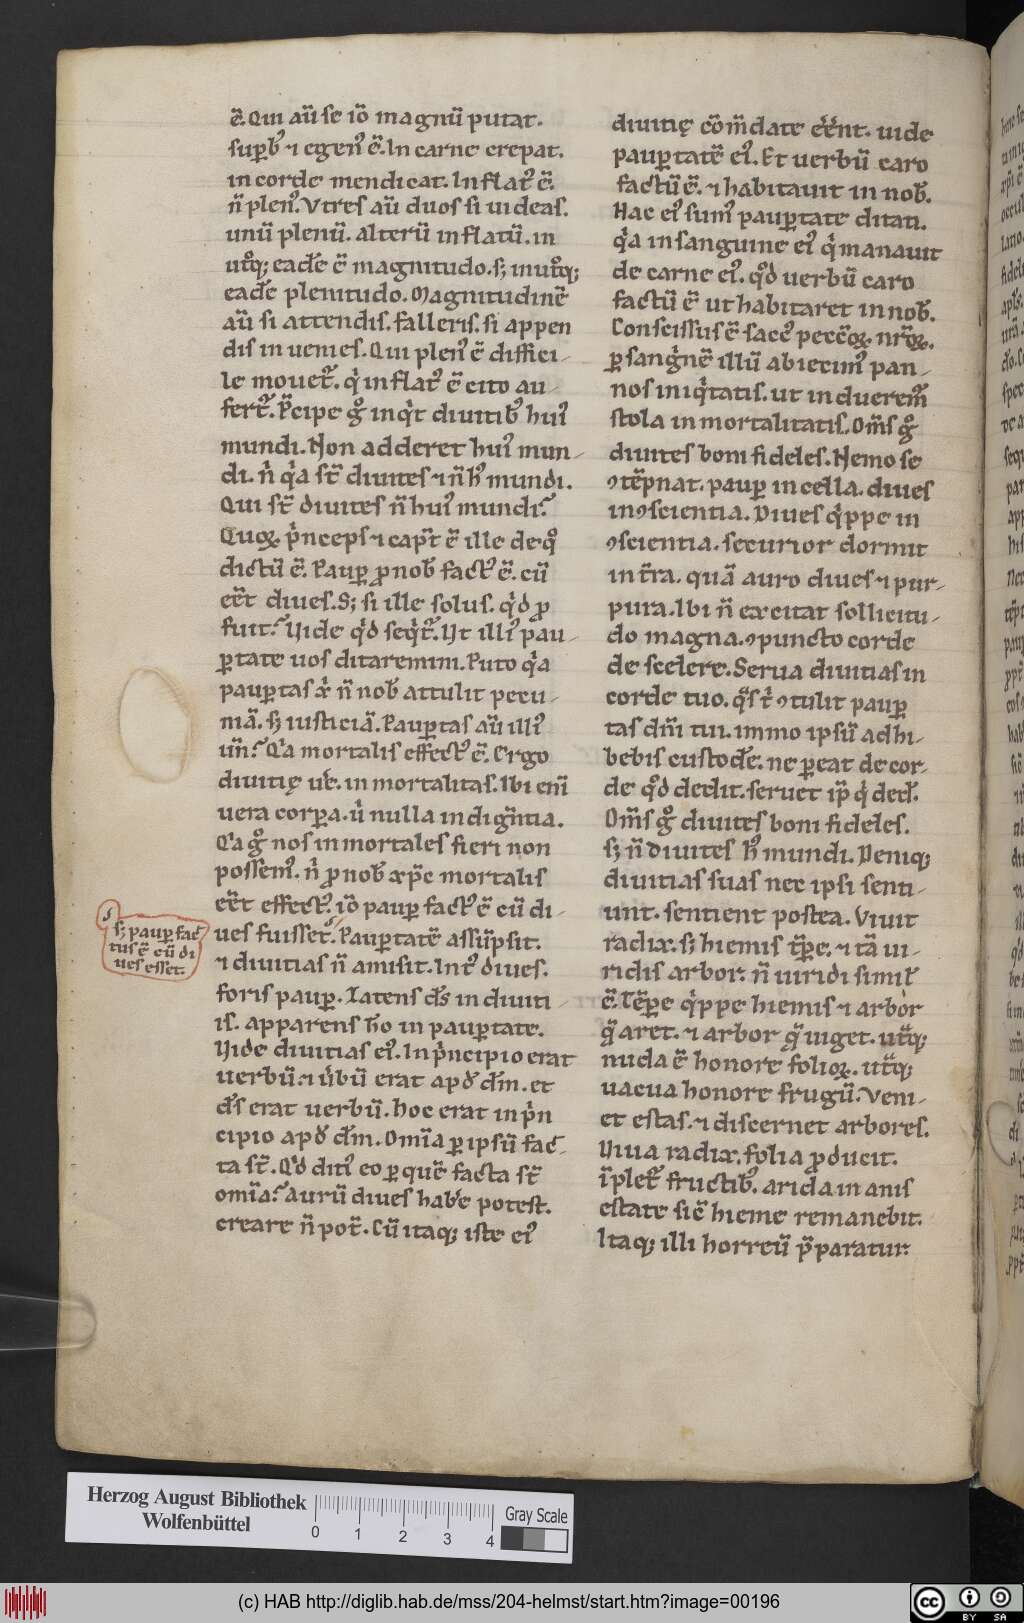 ē. Qui aū se iō magnū putat.
suꝑbꝰ ⁊ egenꝰ ē. In carne crepat.
in corde mendicat. Inflatꝰ ē.
n̄ plenꝰ. Vtres aū duos si uideas.
unū plenū. alterū inflatū. in
utͦqꝫ eadē ē magnitudo. sꝫ in utͦqꝫ
eadē plenitudo. Magnitudinē
aū si attendis. falleris. si appen
dis inuenies. Qui plenꝰ ē diffici-
le mouet᷑. qͥ inflatꝰ ē cito au-
fert᷑. P̄cipe gͦ inqͥt diuitibꝰ huiꝰ
mundi. Non adderet huiꝰ mun-
di. nͥ qͥa st̄ diuites ⁊ n̄ hꝰ mundi.
Qui st̄ diuites n̄ huiꝰ mundi?
Quoꝝ pͥnceps ⁊ cap̄t ē ille de qͦ
dictū ē. Pauꝑ ꝓ nob̄ factꝰ ē. cū
eēt diues. Sꝫ si ille solus. qͥd ꝓ
fuit? Vide qͥd seqͥt᷑. Vt illiꝰ pau-
ꝑtate uos ditaremini. Puto qͥa
pauꝑtas xͥ n̄ nob̄ attulit pecu-
niā. sꝫ iusticiā. Pauꝑtas aū illiꝰ
un̄? Qͥa mortalis effectꝰ ē. Ergo
diuitię ue᷑. inmortalitas. Ibi enī
uera corꝑa. uͥ nulla indigн̄tia.
Qͥa gͦ nos inmortales fieri non
possemꝰ. nͥ ꝓ nob̄ xp̄c mortalis
eēt effectꝰ. iō pauꝑ factꝰ ē cū di-
ues fuisset. Pauꝑtatē assūpsit.
⁊ diuitias n̄ amisit. Intꝰ diues.
foris pauꝑ. Latens d̄s in diuiti-
is. apparens hō in pauꝑtate.
Vide diuitias eiꝰ. In pͥncipio erat
uerbū. ⁊ uͥbū erat apđ dm̄. et
d̄s erat uerbū. hoc erat in pͥn
cipio apđ dm̄. Omīa ꝑ ipsū fac-
ta st̄. Qͥd ditiꝰ eo ꝑ quē facta st̄
omīa? Aurū diues habe᷑ potest.
creare n̄ pot̄. Cū itaqꝫ iste eiꝰ
sꝫ pauꝑ fac
tus ē cū di
ues esset.
diuitię cōm̄date eēnt. uide
pauꝑtatē eiꝰ. Et uerbū caro
factū ē. ⁊ habitauit in nob̄.
Hac eiꝰ sumꝰ pauꝑtate ditati.
qͥa in sanguine eiꝰ qͥ manauit
de carne eiꝰ. qͦd uerbū caro
factū ē ut habitaret in nob̄.
Conscissus ē saccꝰ peccͣoꝝ. nr̄oꝝ.
ꝑ sangͥnē illū abiecimꝰ pan-
nos iniqͥtatis. ut indueremꝰ
stola inmortalitatis. Om̄s gͦ
diuites boni fideles. Nemo se
ꝯtēpnat. pauꝑ in cella. diues
in ꝯscientia. Diues qͥppe in
ꝯscientia. securior dormit
in t̄ra. quā auro diues ⁊ pur-
pura. Ibi n̄ excitat sollicitu-
do magna. ꝯpuncto corde
de scelere. Serua diuitias in
corde tuo. qͣs tͥ ꝯtulit pauꝑ
tas dn̄i tui. immo ipsū adhi-
bebis custodē. ne ꝑeat de cor-
de qͦd dedit. seruet ip̄ qͥ ded̄.
Om̄s gͦ diuites boni fideles.
sꝫ n̄ diuites hꝰ mundi. Deniqꝫ
diuitias suas nec ipsi senti-
unt. sentient postea. Viuit
radix. sꝫ hiemis tp̄e. ⁊ tā ui-
ridis arbor. n̄ uiridi simil̄
ē. Tēꝑe qͥppe hiemis ⁊ arbor
qͣ aret. ⁊ arbor qͣ uiget. utͣqꝫ
nuda ē honore folioꝝ. utͣqꝫ
uacua honore frugū. Veni-
et estas. ⁊ discernet arbores.
Viua radix. folia ꝓducit.
īplet᷑ fructibꝰ. arida inanis
estate sic̄ hieme remanebit.
Itaqꝫ illi horreū p̄paratur.
Herzog August Bibliothek
Wolfenbüttel
0 1 2 3 4
Gray Scale
(c) HAB http://diglib.hab.de/mss/204-helmst/start.htm?image=00196
cc BY SA